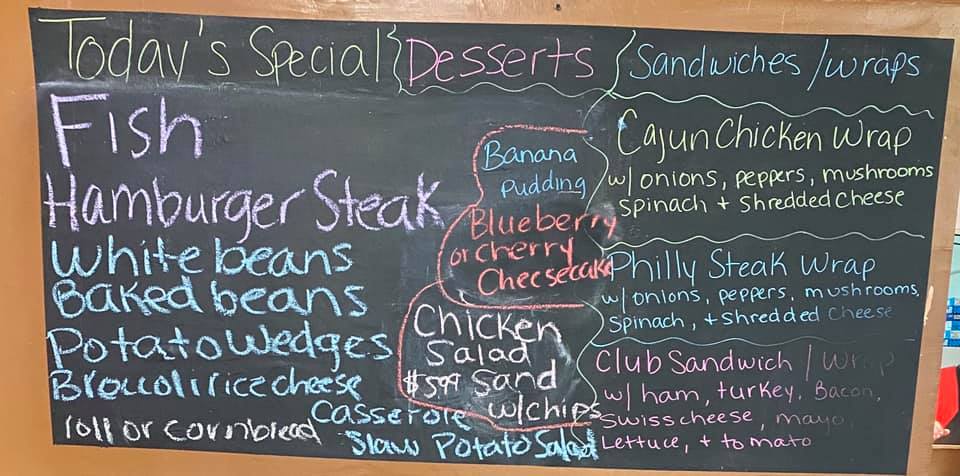 Today's Special
Fish
Hamburger Steak
White beans
Baked beans
Potato Wedges
Broccoli rice cheese
Casserole
roll or cornbread
Slaw Potato Salad
Desserts
Banana
pudding
Blueberry
or cherry
Cheesecake
Chicken
Salad
$5.99 Sand
w/chips
Sandwiches/wraps
Cajun Chicken Wrap
w/onions, peppers, mushrooms
spinach + Shredded Cheese
Philly Steak Wrap
w/onions, peppers, mushrooms,
Spinach, + Shredded Cheese
Club Sandwich / Wrap
w/ham, turkey, Bacon,
Swiss cheese, mayo,
Lettuce, + tomato